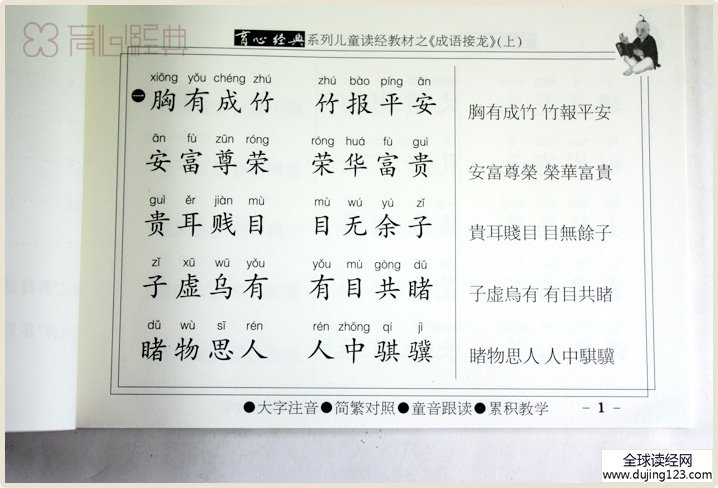 育心经典
育心经典系列儿童读经教材之《成语接龙》(上)
xiōng yǒu chéng zhú zhú bào píng ān
一胸有成竹 竹报平安 胸有成竹 竹報平安
ān fù zūn róng róng huá fù guì
安富尊荣 荣华富贵 安富尊榮 榮華富貴
guì ěr jiàn mù mù wú yú zǐ
贵耳贱目 目无余子 貴耳賤目 目無餘子
zǐ xū wū yǒu yǒu mù gòng dǔ
子虚乌有 有目共睹 子虛烏有 有目共睹
dǔ wù sī rén rén zhōng qí jì
睹物思人 人中骐骥 睹物思人 人中騏驥
●大字注音●简繁对照●童音跟读●累积教学 - 1 -
全球读经网
www.dujing123.com